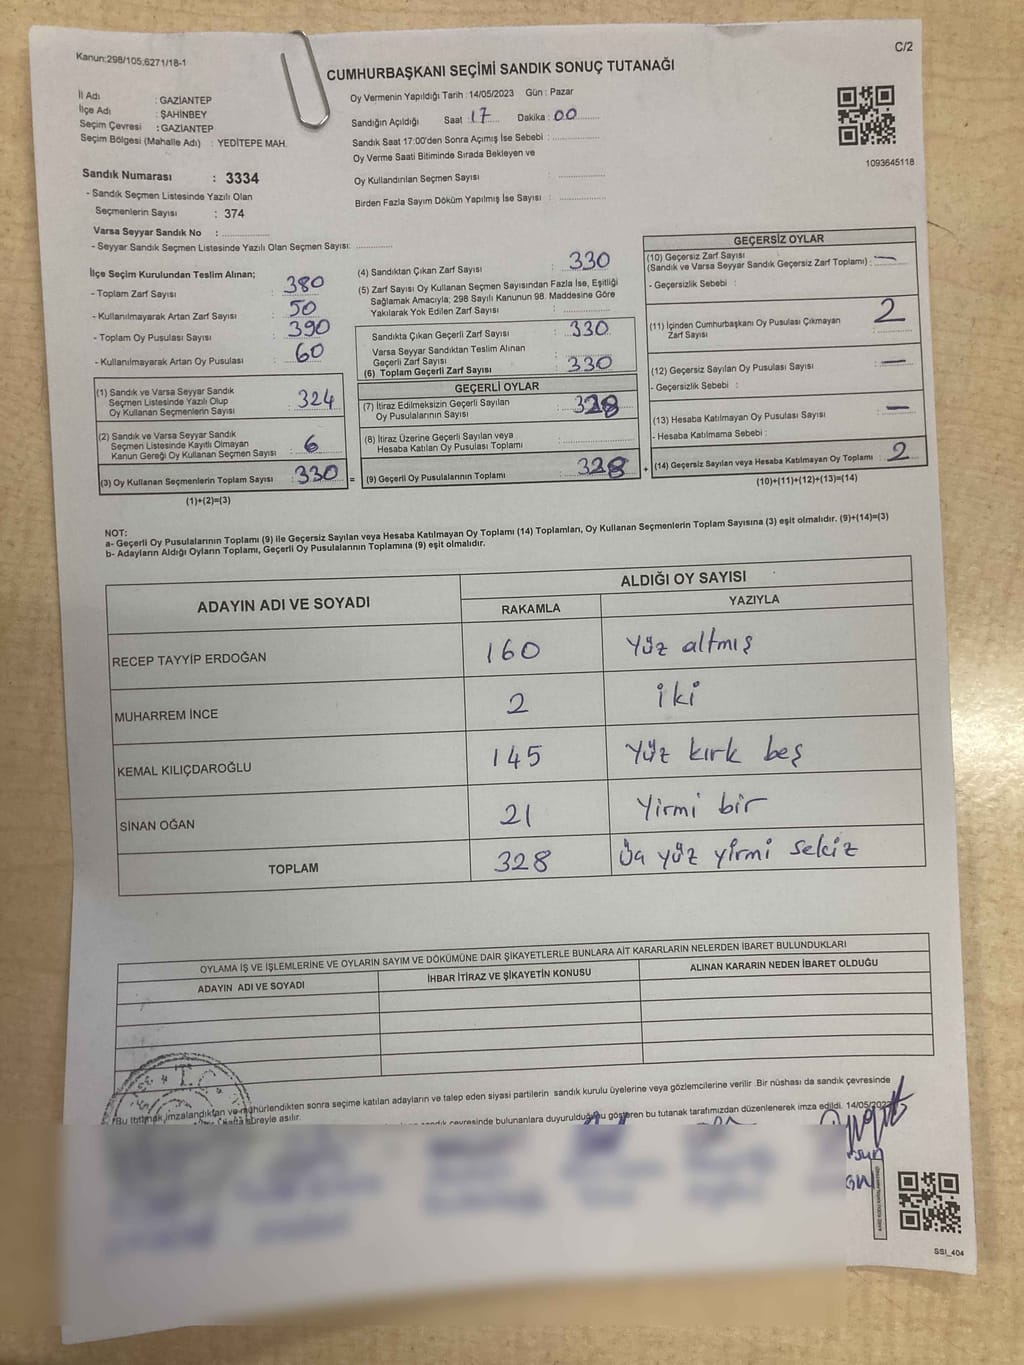 Kanun:298/105,6271/18-1
C/2
CUMHURBAŞKANI SEÇİMİ SANDIK SONUÇ TUTANAĞI
İl Adı : GAZİANTEP
İlçe Adı : ŞAHİNBEY
Seçim Çevresi : GAZİANTEP
Seçim Bölgesi (Mahalle Adı) : YEDİTEPE MAH.
Oy Vermenin Yapıldığı Tarih : 14/05/2023 Gün : Pazar
Sandığın Açıldığı Saat : 17 Dakika : 00
Sandık Saat 17:00'den Sonra Açımış İse Sebebi :
Oy Verme Saati Bitiminde Sırada Bekleyen ve
Oy Kullandırılan Seçmen Sayısı :
Birden Fazla Sayım Döküm Yapılmış İse Sayısı :
1093645118
Sandık Numarası : 3334
- Sandık Seçmen Listesinde Yazılı Olan
Seçmenlerin Sayısı : 374
Varsa Seyyar Sandık No :
- Seyyar Sandık Seçmen Listesinde Yazılı Olan Seçmen Sayısı:
İlçe Seçim Kurulundan Teslim Alınan;
- Toplam Zarf Sayısı : 380
- Kullanılmayarak Artan Zarf Sayısı : 50
- Toplam Oy Pusulası Sayısı : 390
- Kullanılmayarak Artan Oy Pusulası : 60
(1) Sandık ve Varsa Seyyar Sandık
Seçmen Listesinde Yazılı Olup
Oy Kullanan Seçmenlerin Sayısı : 324
(2) Sandık ve Varsa Seyyar Sandık
Seçmen Listesinde Kayıtlı Olmayan
Kanun Gereği Oy Kullanan Seçmen Sayısı : 6
(3) Oy Kullanan Seçmenlerin Toplam Sayısı : 330 =
(1)+(2)=(3)
(4) Sandıktan Çıkan Zarf Sayısı : 330
(5) Zarf Sayısı Oy Kullanan Seçmen Sayısından Fazla İse, Eşitliği
Sağlamak Amacıyla; 298 Sayılı Kanunun 98. Maddesine Göre
Yakılarak Yok Edilen Zarf Sayısı :
Sandıkta Çıkan Geçerli Zarf Sayısı : 330
Varsa Seyyar Sandıktan Teslim Alınan
Geçerli Zarf Sayısı :
(6) Toplam Geçerli Zarf Sayısı : 330
GEÇERLİ OYLAR
(7) İtiraz Edilmeksizin Geçerli Sayılan
Oy Pusulalarının Sayısı : 328
(8) İtiraz Üzerine Geçerli Sayılan veya
Hesaba Katılan Oy Pusulası Toplamı :
(9) Geçerli Oy Pusulalarının Toplamı : 328 +
GEÇERSİZ OYLAR
(10) Geçersiz Zarf Sayısı
(Sandık ve Varsa Seyyar Sandık Geçersiz Zarf Toplamı) : —
- Geçersizlik Sebebi :
(11) İçinden Cumhurbaşkanı Oy Pusulası Çıkmayan
Zarf Sayısı : 2
(12) Geçersiz Sayılan Oy Pusulası Sayısı : —
- Geçersizlik Sebebi :
(13) Hesaba Katılmayan Oy Pusulası Sayısı : —
- Hesaba Katılmama Sebebi :
(14) Geçersiz Sayılan veya Hesaba Katılmayan Oy Toplamı : 2
(10)+(11)+(12)+(13)=(14)
NOT:
a- Geçerli Oy Pusulalarının Toplamı (9) ile Geçersiz Sayılan veya Hesaba Katılmayan Oy Toplamı (14) Toplamları, Oy Kullanan Seçmenlerin Toplam Sayısına (3) eşit olmalıdır. (9)+(14)=(3)
b- Adayların Aldığı Oyların Toplamı, Geçerli Oy Pusulalarının Toplamına (9) eşit olmalıdır.
ADAYIN ADI VE SOYADI
ALDIĞI OY SAYISI
RAKAMLA YAZIYLA
RECEP TAYYİP ERDOĞAN 160 Yüz altmış
MUHARREM İNCE 2 iki
KEMAL KILIÇDAROĞLU 145 Yüz kırk beş
SİNAN OĞAN 21 Yirmi bir
TOPLAM 328 yüz yirmi sekiz
OYLAMA İŞ VE İŞLEMLERİNE VE OYLARIN SAYIM VE DÖKÜMÜNE DAİR ŞİKAYETLERLE BUNLARA AİT KARARLARIN NELERDEN İBARET BULUNDUKLARI
ADAYIN ADI VE SOYADI İHBAR İTİRAZ VE ŞİKAYETİN KONUSU ALINAN KARARIN NEDEN İBARET OLDUĞU
T.C.
Bu tutanak,imzalandıktan ve mühürlendikten sonra seçime katılan adayların ve talep eden siyasi partilerin sandık kurulu üyelerine veya gözlemcilerine verilir .Bir nüshası da sandık çevresinde
süreyle asılır.
sandık çevresinde bulunanlara duyurulduğunu gösteren bu tutanak tarafımızdan düzenlenerek imza edildi. 14/05/2023
SSI_404